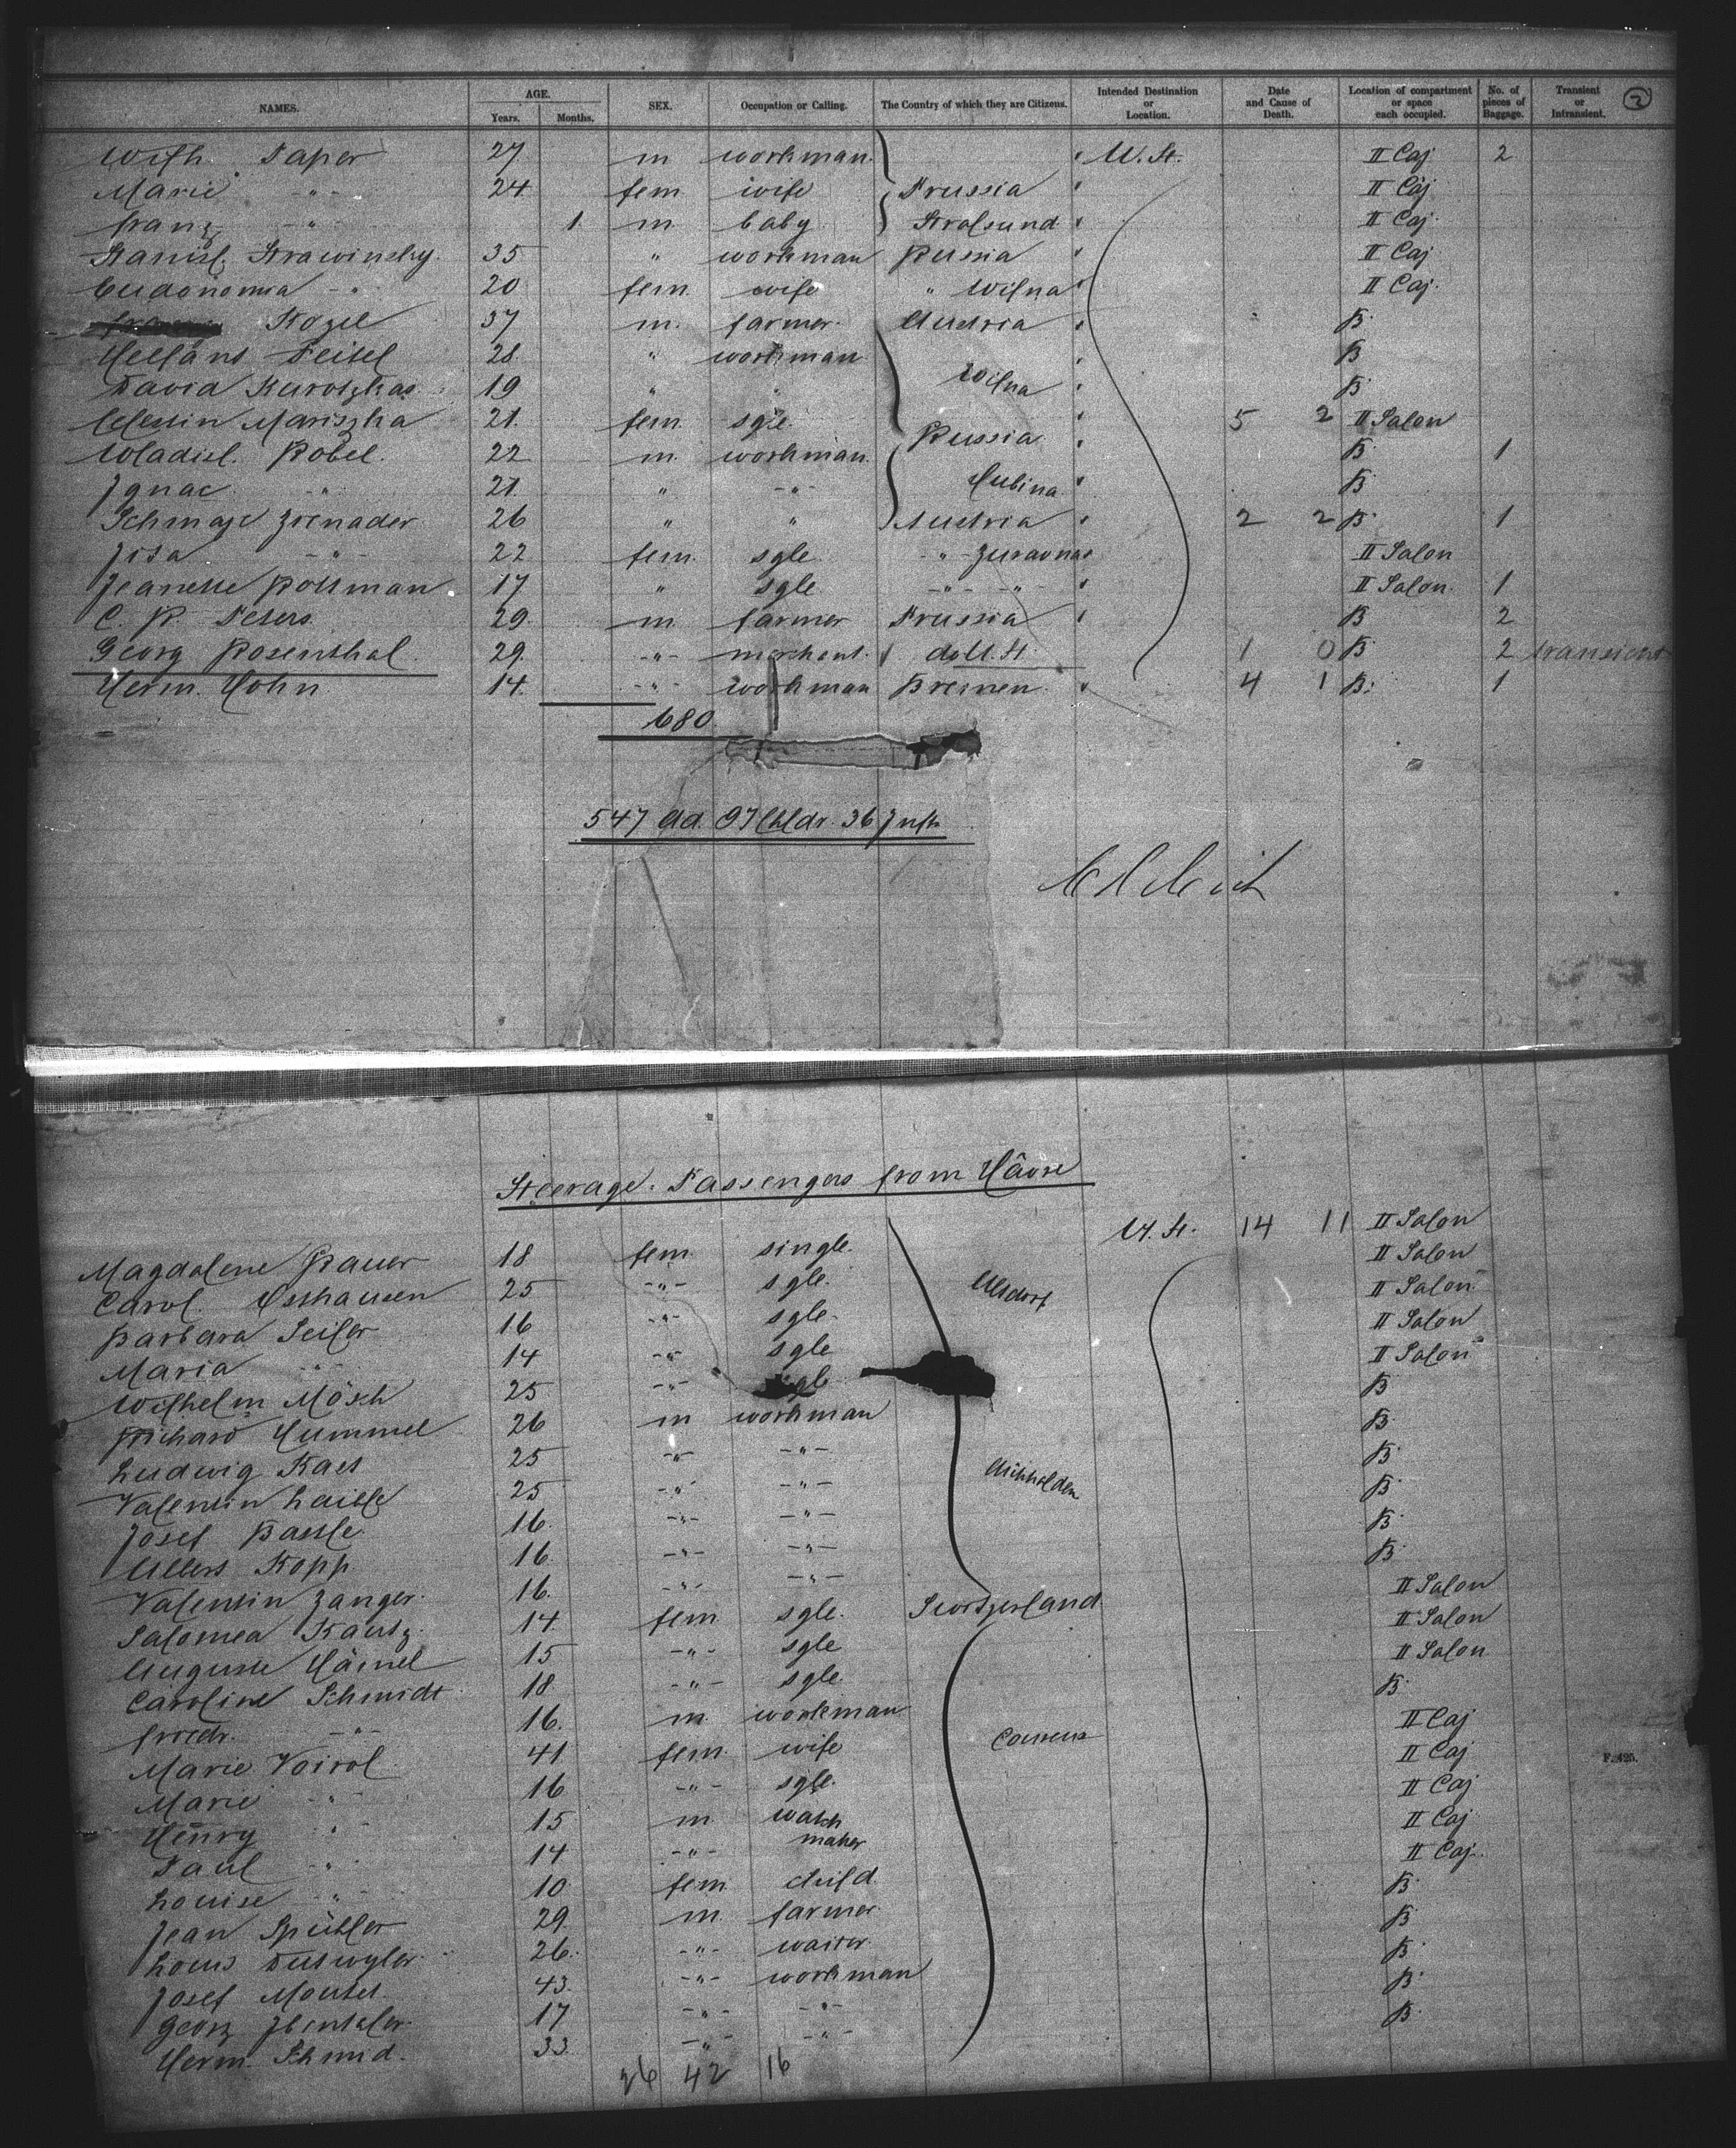 NAMES. AGE. Years. Months. SEX. Occupation or Calling. The Country of which they are Citizens. Intended Destination or Location. Date and Cause of Death. Location of compartment or space each occupied. No. of pieces of Baggage. Transient or Intransient. 2
Wilh. Paper 27 m workman U. St. II Caj 2
Marie -"- 24 fem wife Prussia II Caj
Franz -"- 1 m baby Stralsund II Caj
Stanisl. Strawinsky 35 " workman Russia II Caj
-"- 20 fem. wife " Wilna II Caj.
Kozel 37 m. farmer Austria B
Feisel 28 " workman B
David 19 " " Wilna B
Mariszka 21. fem. sgle 5 2 II Salon
Wladisl. Robel. 22 m. workman. Russia B 1
Ignac -"- 21. " -"- B
26 " " Austria 2 2 B 1
-"- 22 fem. sgle -"- Zuravna II Salon
Jeanette Rottman 17 " sgle -"- -"- II Salon 1
C. R. Peters 29. m farmer Prussia B 2
Georg Rosenthal. 29. -"- merchant. do U. St. 1 0 B 2 transient
Herm. Hohn 14. -"- workman Bremen 4 1 B. 1
680
547 Ad. 97 Chldr. 36 Inft
Steerage-Passengers from Hâvre
U. St. 14 11 II Salon
Magdalene Bauer 18 fem. single. II Salon
Carol. Osthausen 25 -"- sgle. II Salon
Barbara Seiler 16 -"- sgle. II Salon
Maria -"- 14 -"- sgle II Salon
Wilhelm Mösch 25 -"- B
Richard Hummel 26 m workman B
Ludwig Kaes 25 -"- -"- B
Valentin Laible 25 -"- -"- Aichhalden B
Josef Bassle 16. -"- -"- B
Albert Kopp. 16. -"- -"- B
Valentin Zanger. 16. -"- -"- II Salon
Salomea Kautz. 14. fem sgle. Switzerland II Salon
Auguste 15 -"- sgle II Salon
Caroline Schmidt 18 -"- sgle. B
Friedr. -"- 16. m. workman II Caj
Marie Voirol 41 fem. wife II Caj
Marie -"- 16 -"- sgle. II Caj
Henry -"- 15 m watch II Caj
Paul -"- 14 -"- maker II Caj.
Louise -"- 10 fem child B
Jean Spühler 29. m. farmer B
Louis 26. -"- waiter B
Josef 43. -"- workman B
Georg 17 -"- -"- B
Herm. Schmid. 33. -"- -"-
26 42 16
F. 425.